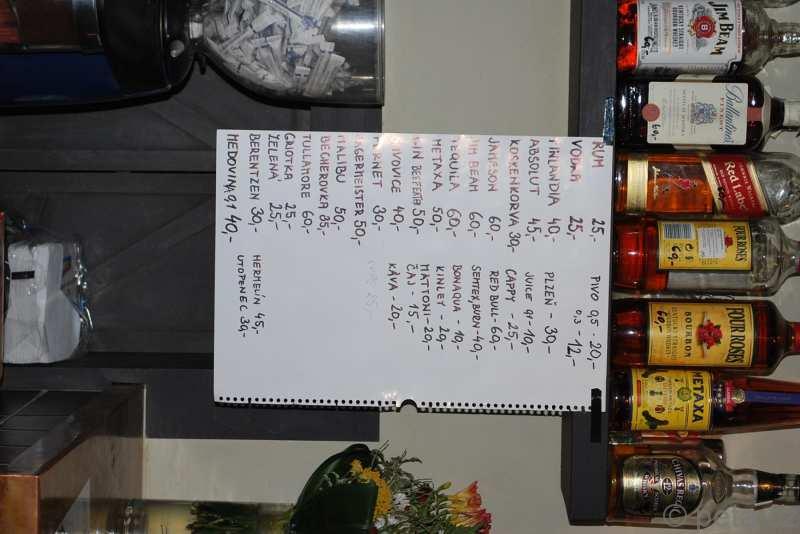 RUM 25,-
VODKA 25,-
FINLANDIA 40,-
ABSOLUT 45,-
KOSKENKORVA 30,-
JAMESON 60,-
JIM BEAM 60,-
TEQUILA 60,-
METAXA 50,-
GIN BEEFEATER 50,-
SLIVOVICE 40,-
FERNET 30,-
JÄGERMEISTER 50,-
MALIBU 50,-
BECHEROVKA 35,-
TULLAMORE 60,-
GRIOTKA 25,-
ZELENÁ 25,-
BERENTZEN 30,-
MEDOVINA 0,1 40,-
PIVO 0,5 . 20,-
0,3 - 12,-
PLZEŇ - 30,-
JUICE 0,1 - 10,-
CAPPY - 25,-
RED BULL - 60,-
SEMTEX, BURN - 40,-
BONAQUA - 10,-
KINLEY - 20,-
MATTONI - 20,-
ČAJ - 15,-
KÁVA - 20,-
HERMELÍN 45,-
UTOPENEC 30,-
JIM BEAM
KENTUCKY STRAIGHT
BOURBON WHISKEY
60,-
Ballantine's
60,-
Red Label
FOUR ROSES
FOUR ROSES
BOURBON
60,-
METAXA
CHIVAS REGAL
12
© pet